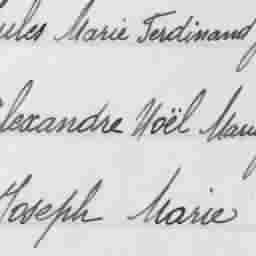 Jules Marie Ferdinand
Alexandre Noël
Joseph Marie